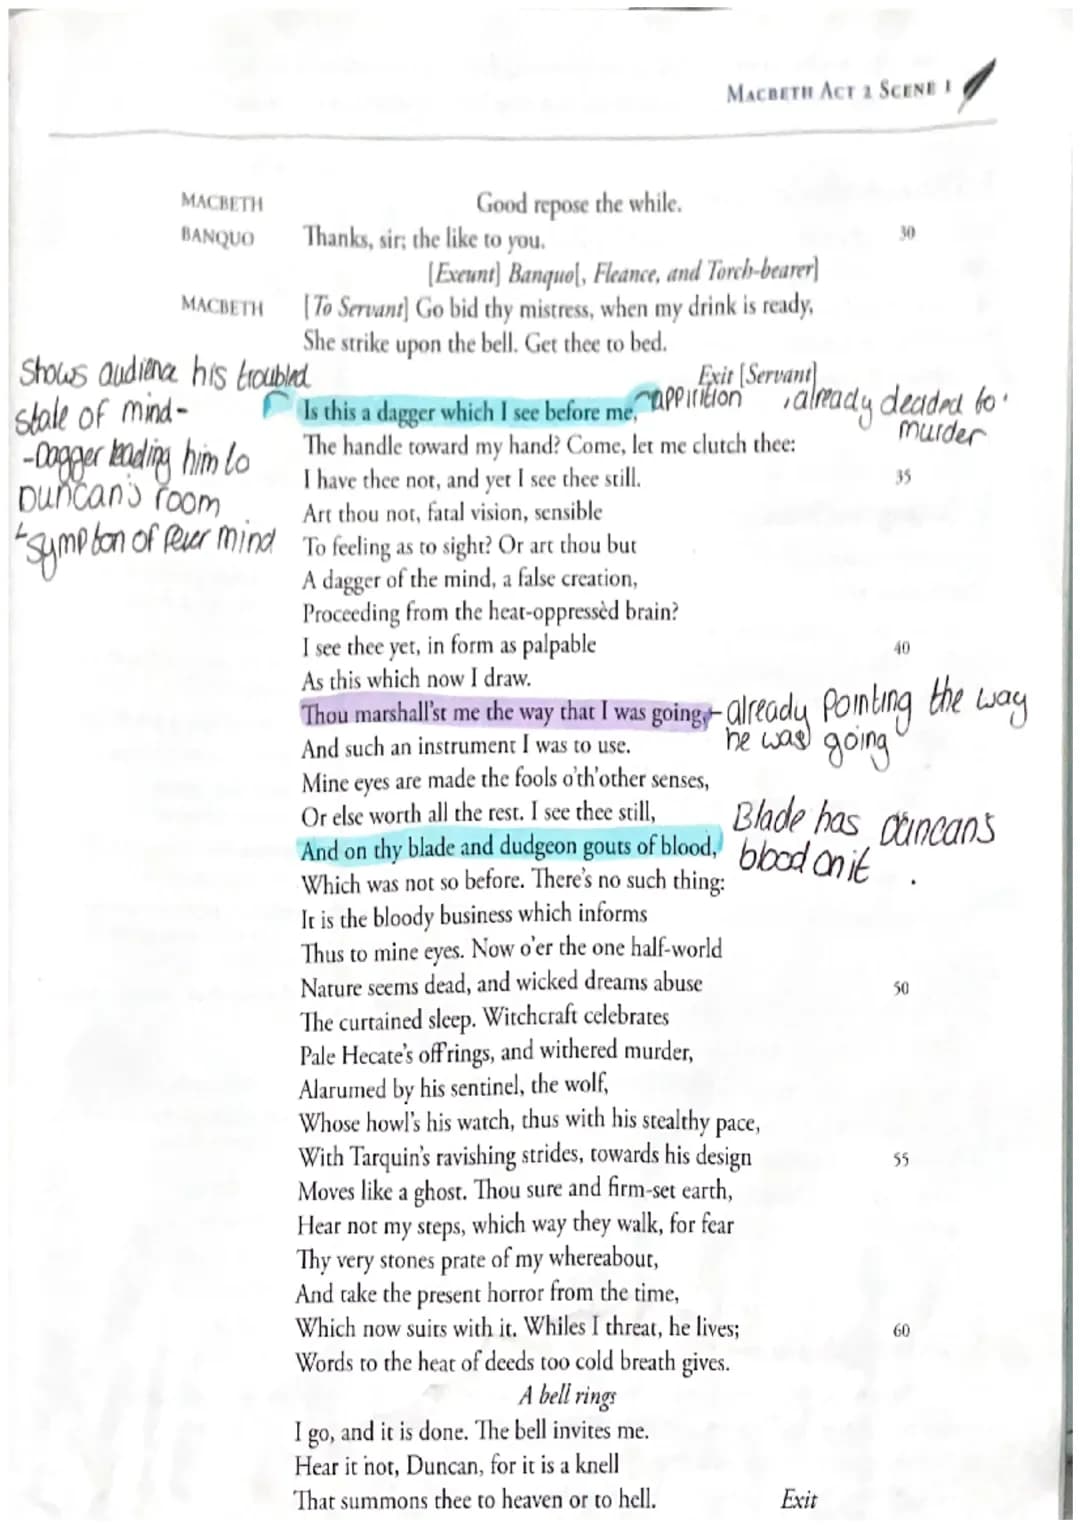 MACBETH ACT 2 SCENE 1
MACBETH Good repose the while.
BANQUO Thanks, sir; the like to you. 30
[Exeunt] Banquo[, Fleance, and Torch-bearer]
MACBETH [To Servant] Go bid thy mistress, when my drink is ready,
She strike upon the bell. Get thee to bed.
Exit [Servant]
Shows audience his troubled
state of mind-
-Dagger leading him to
Duncan's room
symptom of fever mind
Is this a dagger which I see before me,
appirition
, already decided to
murder
The handle toward my hand? Come, let me clutch thee:
I have thee not, and yet I see thee still. 35
Art thou not, fatal vision, sensible
To feeling as to sight? Or art thou but
A dagger of the mind, a false creation,
Proceeding from the heat-oppressèd brain?
I see thee yet, in form as palpable 40
As this which now I draw.
Thou marshall'st me the way that I was going,
- already pointing the way
he was going
And such an instrument I was to use.
Mine eyes are made the fools o'th'other senses,
Or else worth all the rest. I see thee still,
And on thy blade and dudgeon gouts of blood,
Blade has duncans
blood on it .
Which was not so before. There's no such thing:
It is the bloody business which informs
Thus to mine eyes. Now o'er the one half-world
Nature seems dead, and wicked dreams abuse 50
The curtained sleep. Witchcraft celebrates
Pale Hecate's off'rings, and withered murder,
Alarumed by his sentinel, the wolf,
Whose howl's his watch, thus with his stealthy pace,
With Tarquin's ravishing strides, towards his design 55
Moves like a ghost. Thou sure and firm-set earth,
Hear not my steps, which way they walk, for fear
Thy very stones prate of my whereabout,
And take the present horror from the time,
Which now suits with it. Whiles I threat, he lives; 60
Words to the heat of deeds too cold breath gives.
A bell rings
I go, and it is done. The bell invites me.
Hear it not, Duncan, for it is a knell
That summons thee to heaven or to hell. Exit